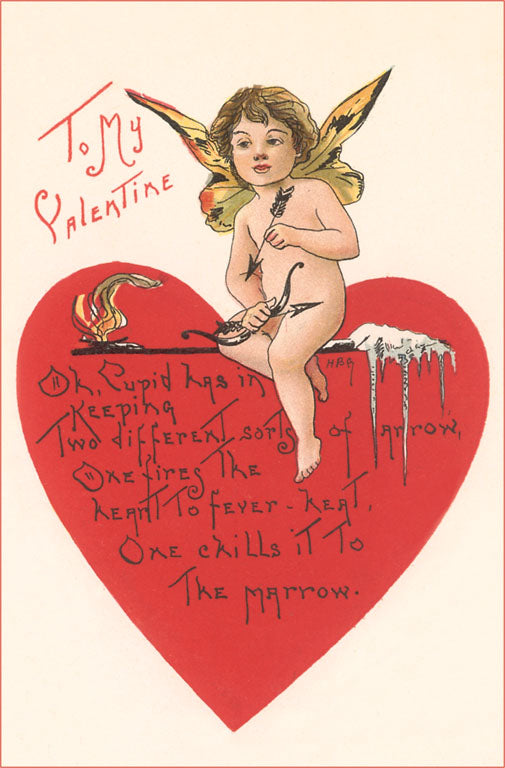 To My
Valentine
HBG
"Oh, Cupid has in
Keeping
Two different sorts of arrow,
"One fires the
heart to fever-heat,
One chills it to
The marrow.